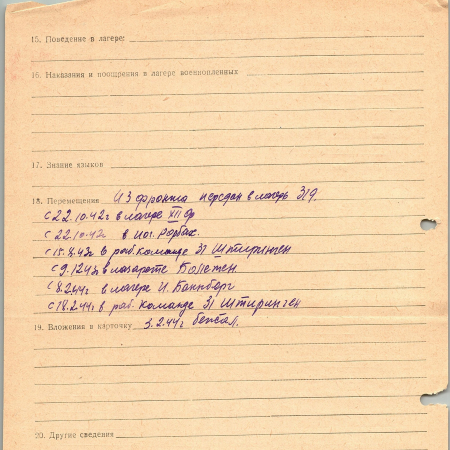 15. Поведение в лагере:
16. Наказания и поощрения в лагере военнопленных
17. Знание языков
18. Перемещения Из фронта передан в лагерь 319.
с 22.10.42г в лагере XII ф
с 22.10.42г в
с в раб. команде 31 Штиринген
с 9.1243г в лазарете
с 8.244г в лагере
с 18.244г в раб. команде 31 Штиринген
19. Вложения в карточку 3.244г бежал.
20. Другие сведения